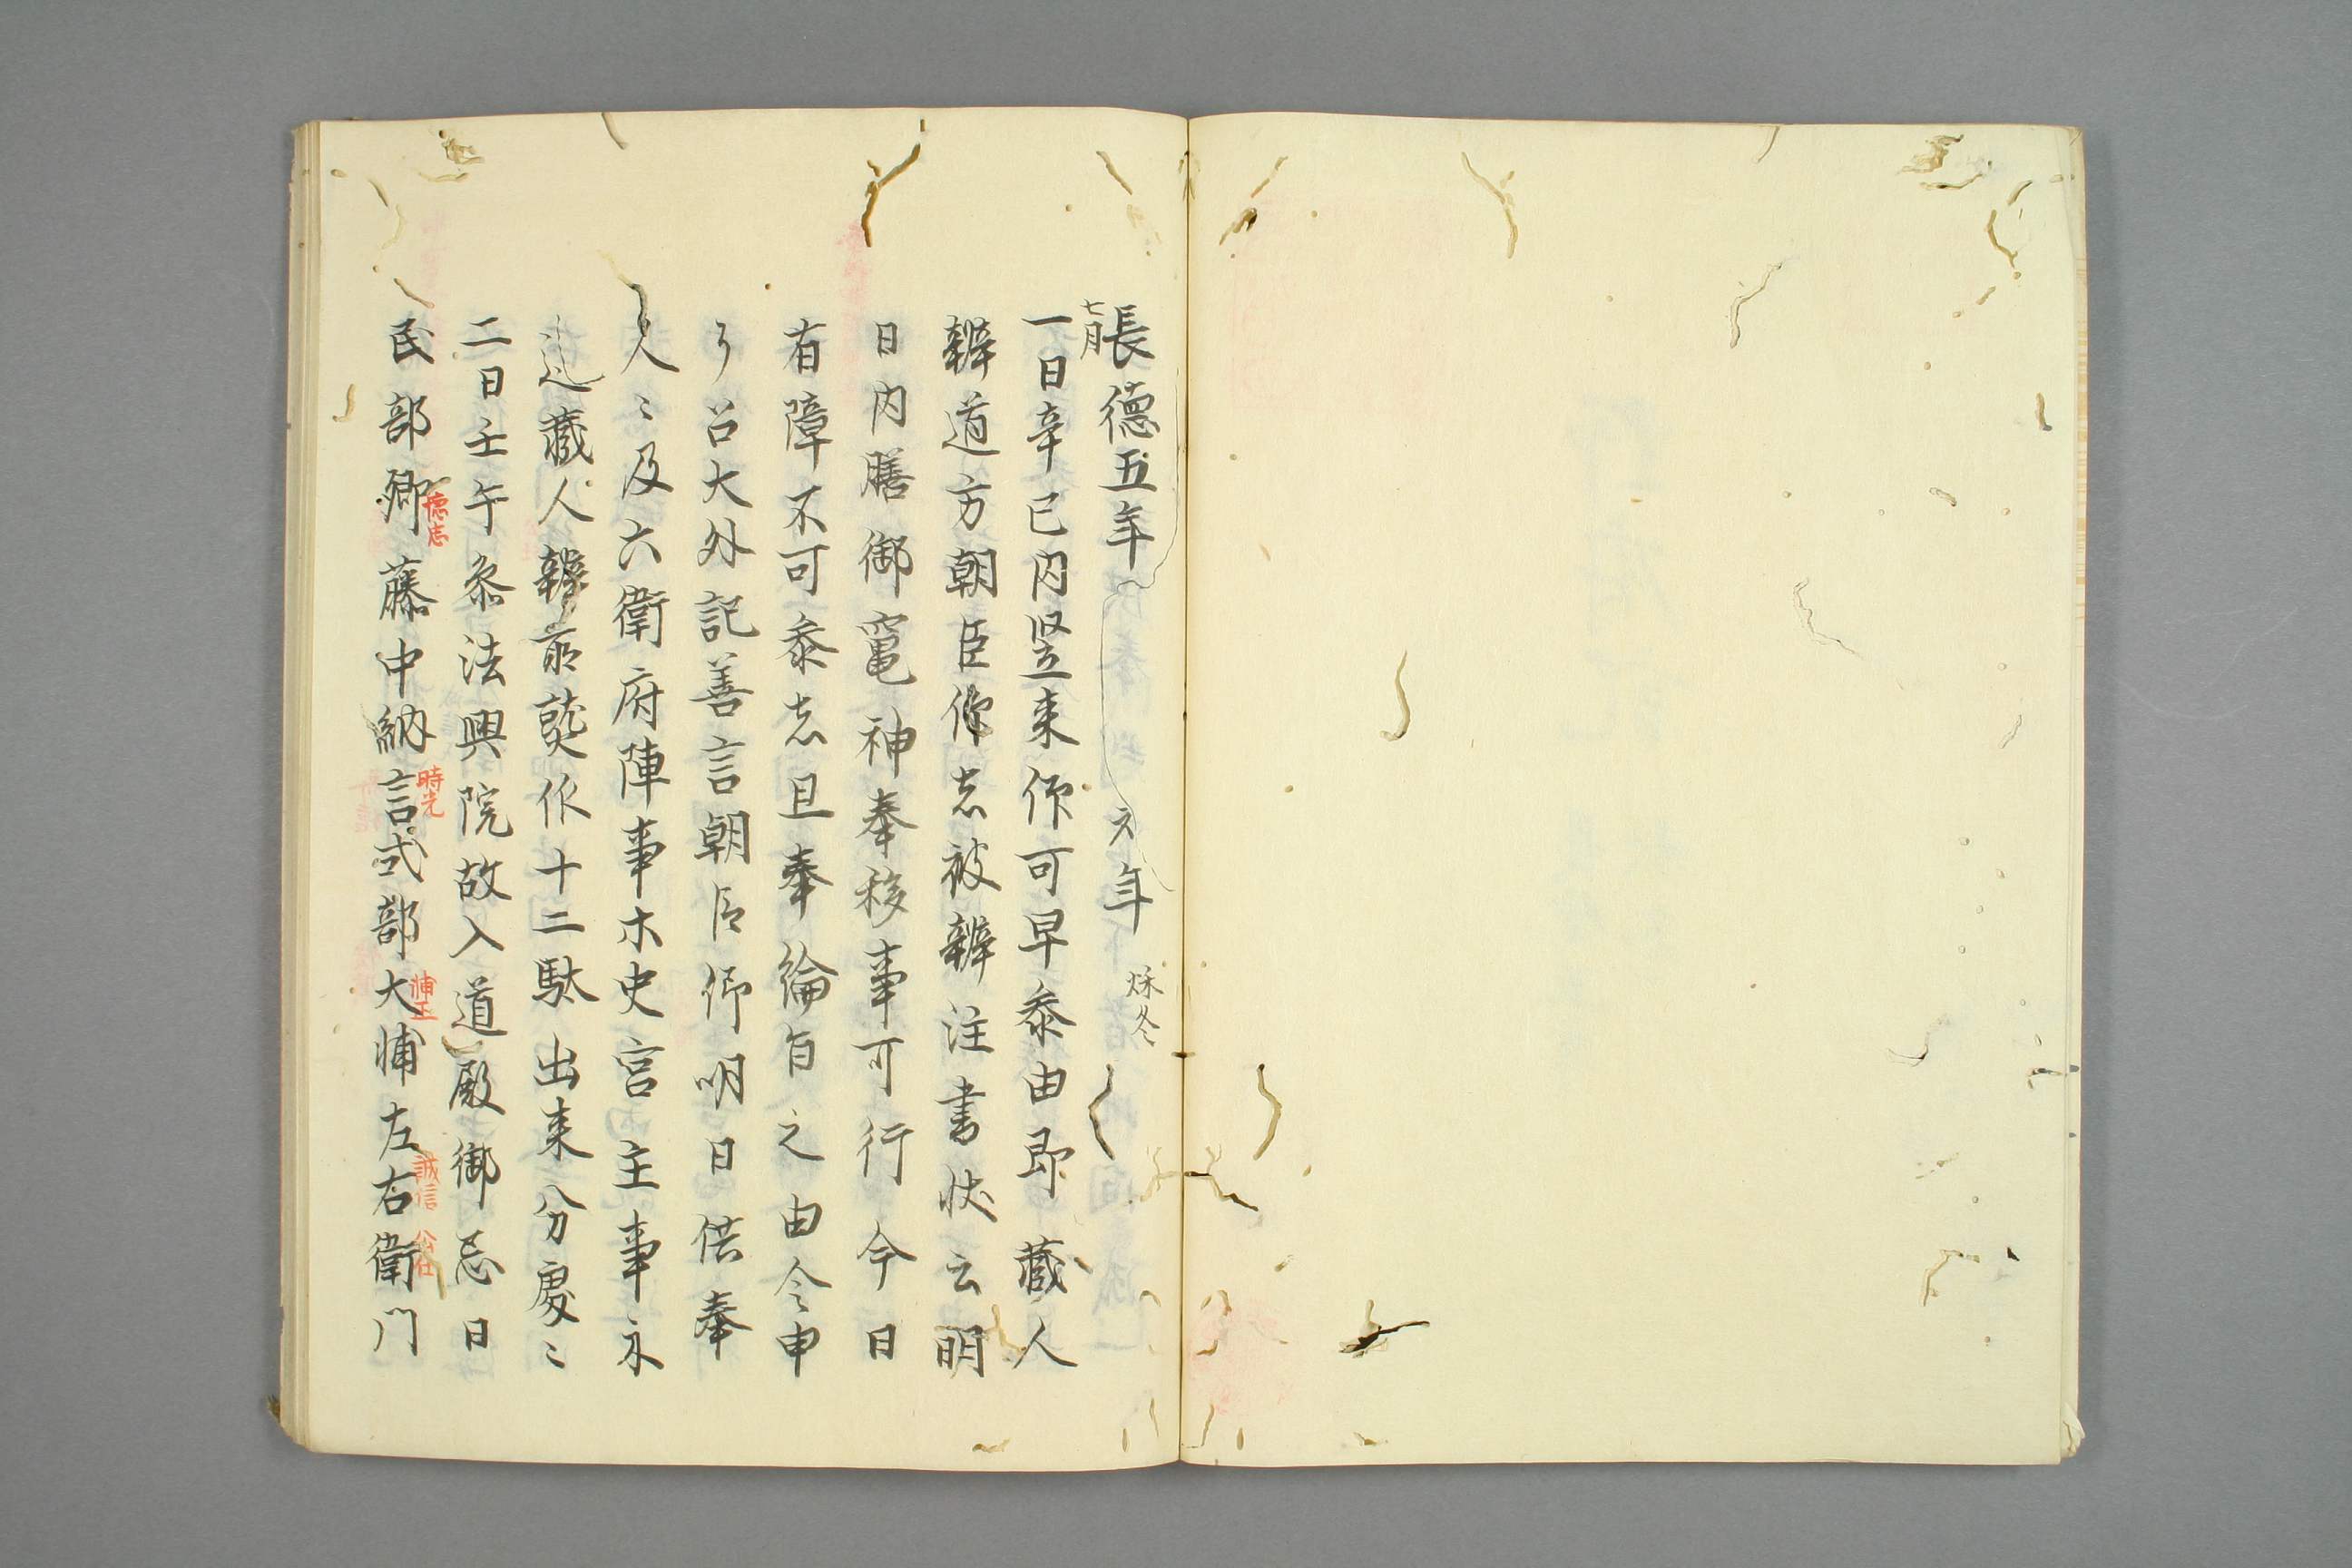 長德五年 元年 秌冬
七月
一日辛巳内竖来仰可早參由即藏人
辨道方朝臣傳志被辨注書状云明
日内膳御竃神奉移事可行今日
有障不可參志且奉綸旨之由令申
了召大外記善言朝臣仰明日供奉
人〻及六衛府陣事木史宮主事示
送藏人辨
十二駄出来分處〻
二日壬午參法興院故入道殿御忌日
民部卿藤中納言式部大輔左右衛門
懐忠
時光
輔正
誠信 公任